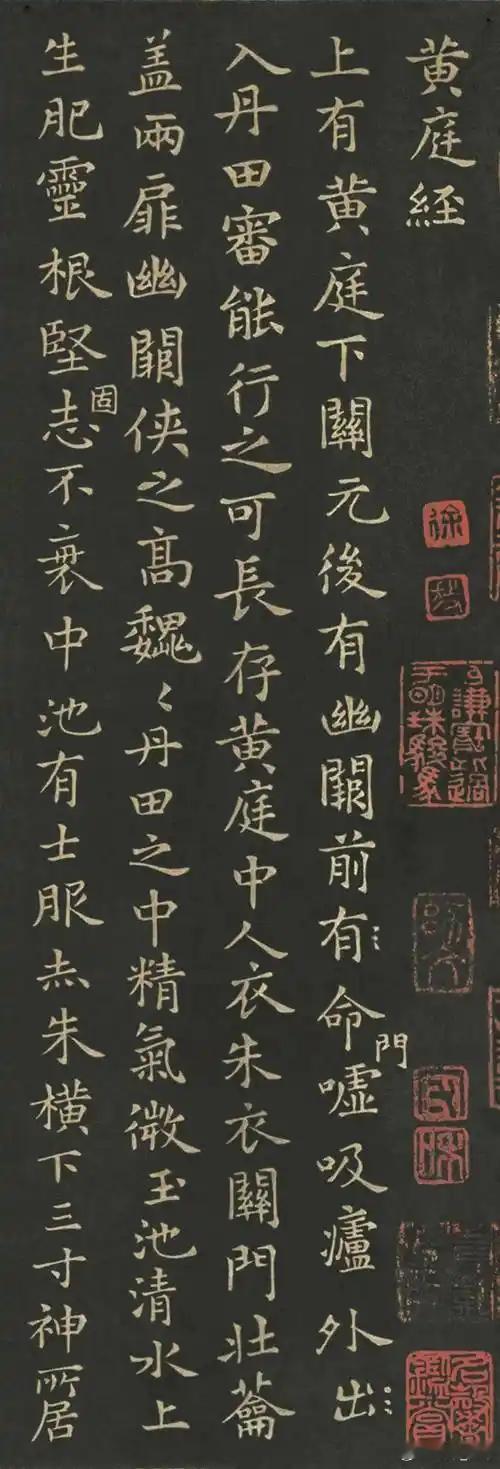 黄庭経
上有黄庭下關元後有幽闕前有命門噓吸廬外出
入丹田審能行之可長存黄庭中人衣朱衣關門壯籥
盖兩扉幽闕俠之高魏〻丹田之中精氣微玉池清水上
生肥靈根堅志固不衰中池有士服赤朱橫下三寸神所居